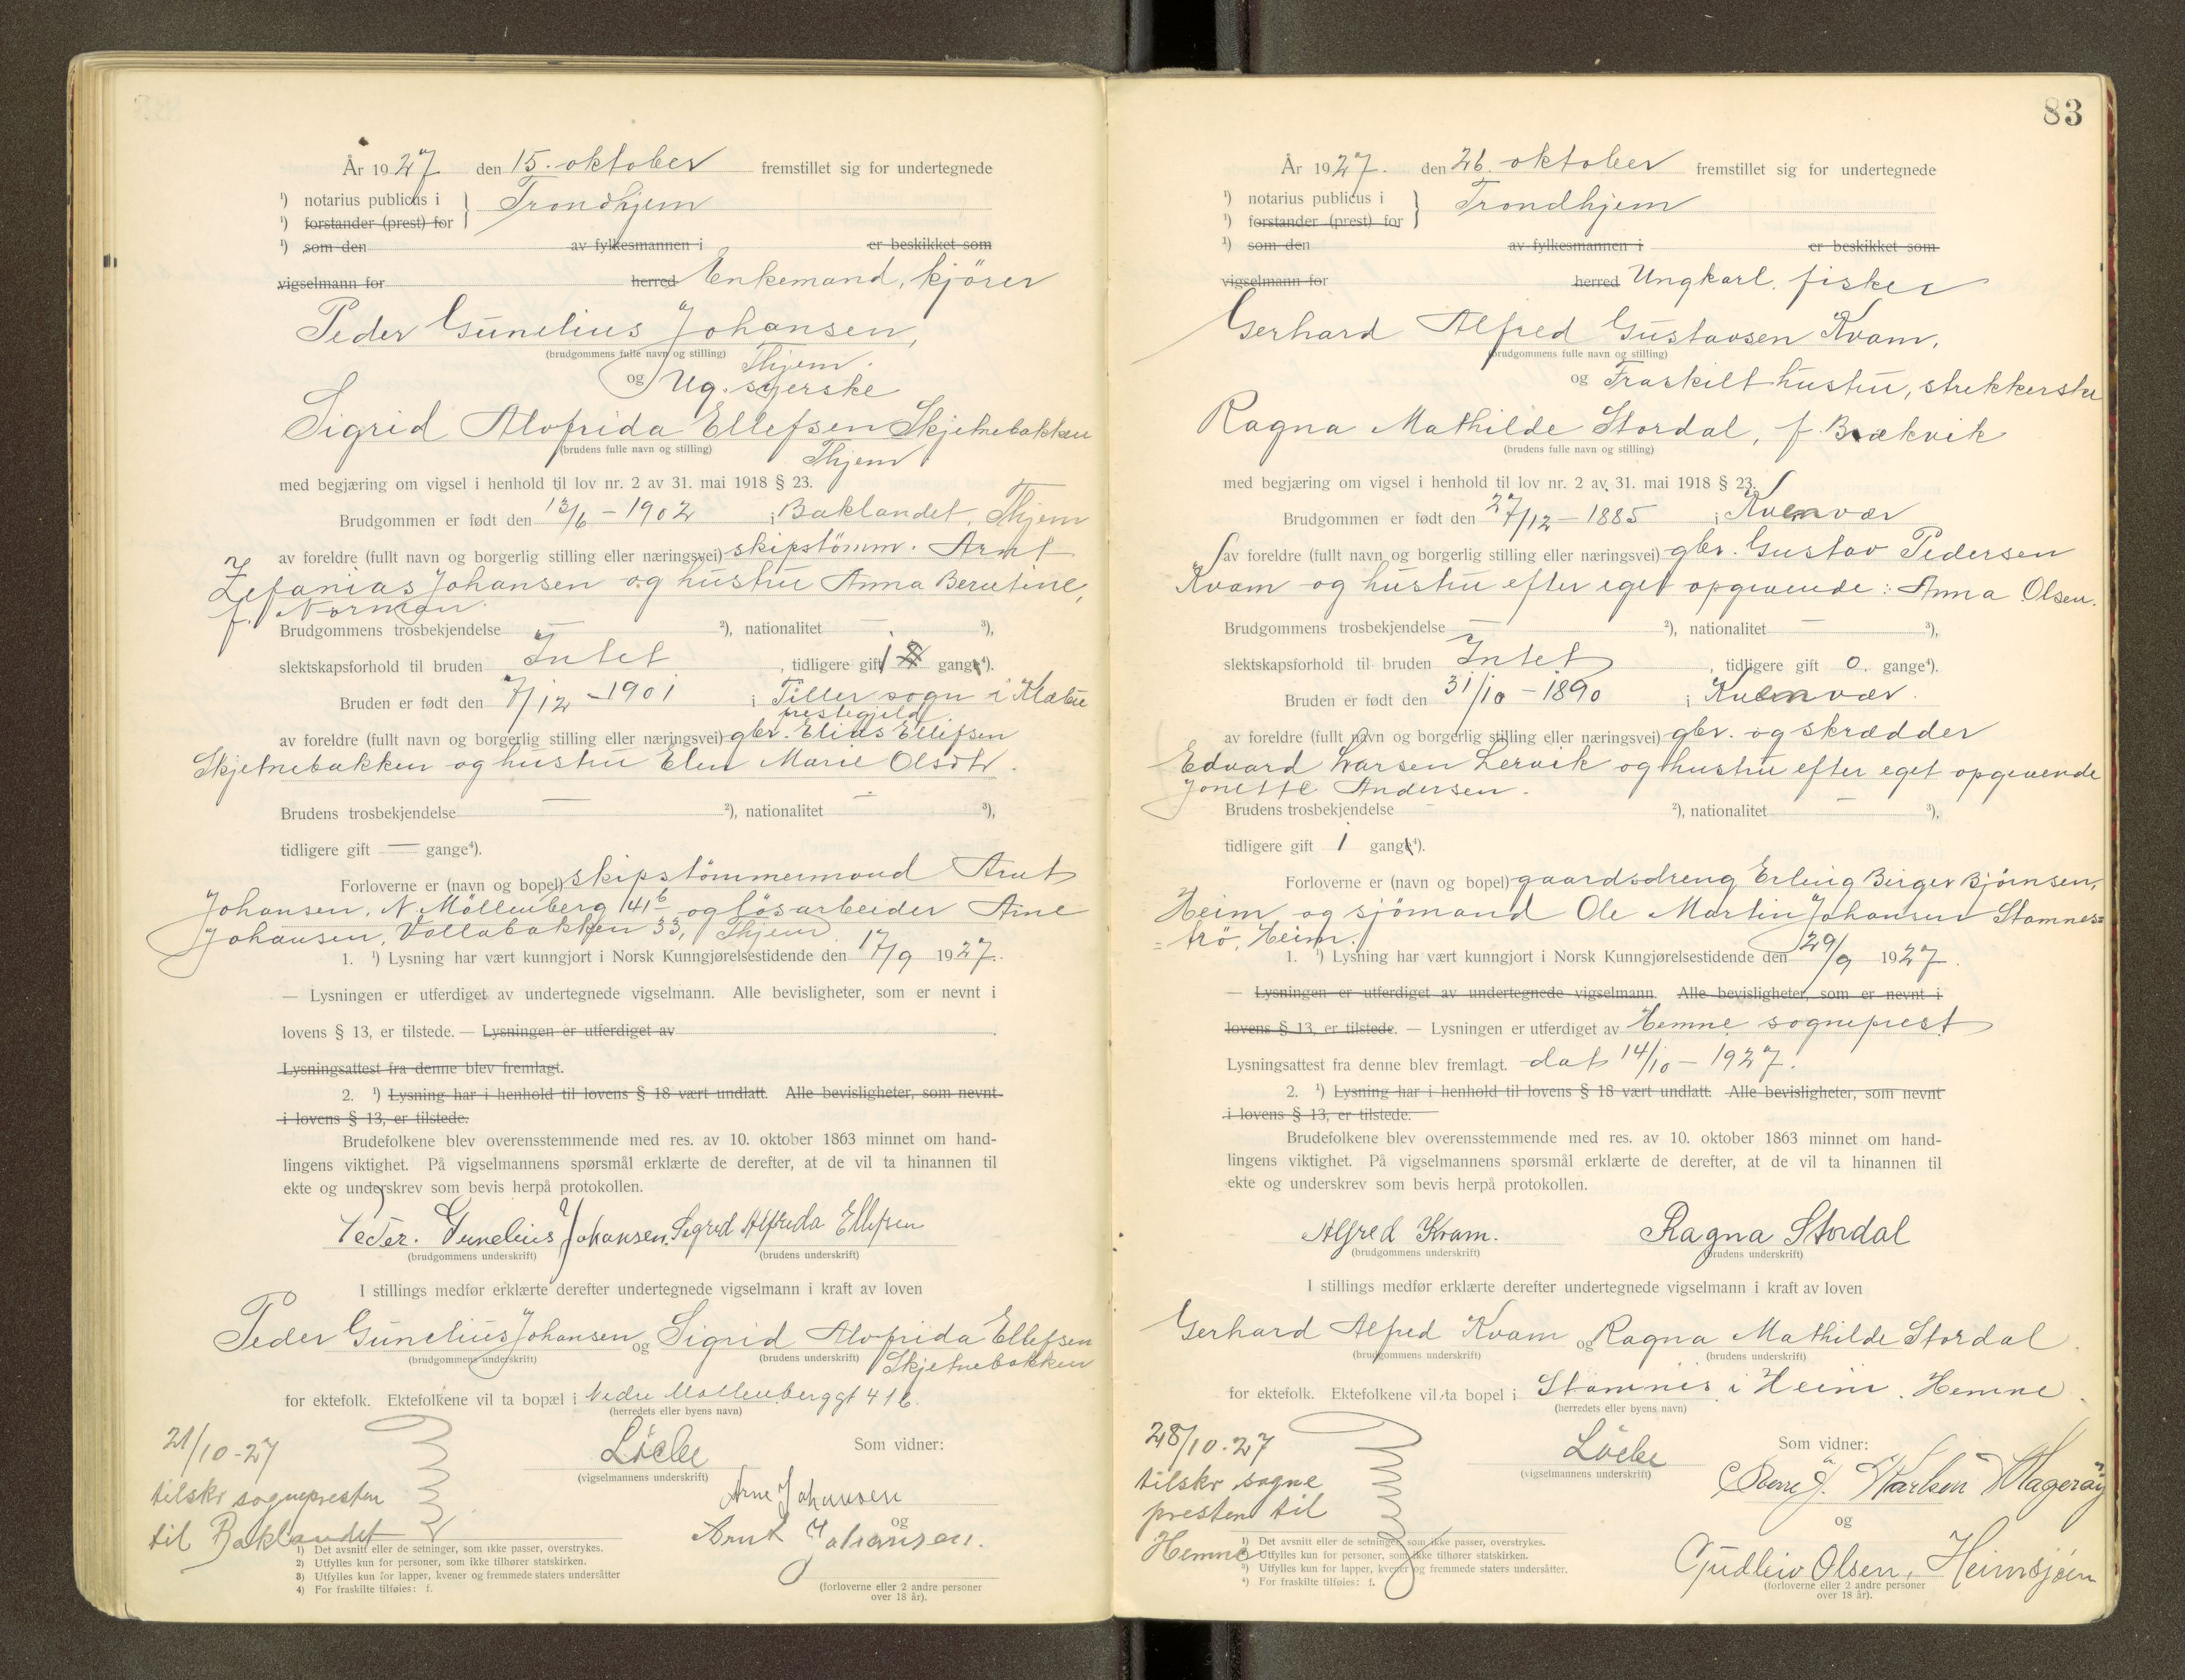 År 1927 den 15. oktober fremstillet sig for undertegnede
¹) notarius publicus i
¹) forstander (prest) for } Trondhjem
¹) som den av fylkesmannen i er beskikket som
vigselmann for herred Enkemand, kjörer
Peder Gunelius Johansen,
(brudgommens fulle navn og stilling) Thjem.
og Ug. syerske
Sigrid Alvfrida Ellefsen Skjetnebakken
(brudens fulle navn og stilling) Thjem
med begjæring om vigsel i henhold til lov nr. 2 av 31. mai 1918 § 23.
Brudgommen er født den 13/6 - 1902 i Baklandet, Thjem
av foreldre (fullt navn og borgerlig stilling eller næringsvei) skipstömm. Arnt
Zefanias Johansen og hustru Anna Berntine,
f. Norman.
Brudgommens trosbekjendelse — ²), nationalitet — ³),
slektskapsforhold til bruden Intet, tidligere gift 1 gang⁴).
Bruden er født den 7/12 - 1901 i Tiller sogn i Klæbu
prestegjeld
av foreldre (fullt navn og borgerlig stilling eller næringsvei) gbr. Elias Ellefsen
Skjetnebakken og hustru Elen Marie Olsdtr.
Brudens trosbekjendelse — ²), nationalitet — ³),
tidligere gift — gange⁴).
Forloverne er (navn og bopel) skipstömmermand Arnt
Johansen, N. Möllenberg 41b og lösarbeider Arne
Johansen, Vollabakken 33, Thjem
1. ¹) Lysning har vært kunngjort i Norsk Kunngjørelsestidende den 17/9 1927.
— Lysningen er utferdiget av undertegnede vigselmann. Alle bevisligheter, som er nevnt i
lovens § 13, er tilstede. — Lysningen er utferdiget av
Lysningsattest fra denne blev fremlagt.
2. ¹) Lysning har i henhold til lovens § 18 vært undlatt. Alle bevisligheter, som nevnt
i lovens § 13, er tilstede.
Brudefolkene blev overensstemmende med res. av 10. oktober 1863 minnet om hand-
lingens viktighet. På vigselmannens spørsmål erklærte de derefter, at de vil ta hinannen til
ekte og underskrev som bevis herpå protokollen.
Peder. Gunelius Johansen. Sigrid Alfrida Ellefsen
(brudgommens underskrift) (brudens underskrift)
I stillings medfør erklærte derefter undertegnede vigselmann i kraft av loven
Peder Gunelius Johansen og Sigrid Alvfrida Ellefsen
(brudgommens underskrift) (brudens underskrift) Skjetnebakken
for ektefolk. Ektefolkene vil ta bopæl i Nedre Möllenberggt 41b.
(herredets eller byens navn)
21/10-27
tilskr sognepresten
til Baklandet
Som vidner:
(vigselmannens underskrift)
Arne Johansen
og
Arnt Johansen.
(forloverne eller 2 andre personer
over 18 år).
1) Det avsnitt eller de setninger, som ikke passer, overstrykes.
2) Utfylles kun for personer, som ikke tilhører statskirken.
3) Utfylles kun for lapper, kvener og fremmede staters undersåtter
4) For fraskilte tilføies: f.
83
År 1927. den 26. oktober fremstillet sig for undertegnede
¹) notarius publicus i
¹) forstander (prest) for } Trondhjem
¹) som den av fylkesmannen i er beskikket som
vigselmann for herred Ungkarl, fisker
Gerhard Alfred Gustavsen Kvam,
(brudgommens fulle navn og stilling)
og Fraskilt hustru, strikkerske
Ragna Mathilde Stordal, f. Brækvik
(brudens fulle navn og stilling)
med begjæring om vigsel i henhold til lov nr. 2 av 31. mai 1918 § 23.
Brudgommen er født den 27/12 - 1885 i Kvenvær
av foreldre (fullt navn og borgerlig stilling eller næringsvei) gbr. Gustav Pedersen
Kvam og hustru efter eget opgivende: Anna Olsen.
Brudgommens trosbekjendelse — ²), nationalitet — ³),
slektskapsforhold til bruden Intet, tidligere gift 0. gange⁴).
Bruden er født den 31/10 - 1890 i Kvenvær.
av foreldre (fullt navn og borgerlig stilling eller næringsvei) gbr. og skrædder
Edvard Larsen Lervik og hustru efter eget opgivende
Jonette Andersen.
Brudens trosbekjendelse — ²), nationalitet — ³),
tidligere gift 1 gang⁴).
Forloverne er (navn og bopel) gaardsdreng Erling Birger Bjørnsen,
Heim og sjömand Ole Martin Johansen Stamnes=
=trö, Heim.
1. ¹) Lysning har vært kunngjort i Norsk Kunngjørelsestidende den 29/9 1927.
— Lysningen er utferdiget av undertegnede vigselmann. Alle bevisligheter, som er nevnt i
lovens § 13, er tilstede. — Lysningen er utferdiget av Hemne sogneprest
Lysningsattest fra denne blev fremlagt. dat 14/10 - 1927.
2. ¹) Lysning har i henhold til lovens § 18 vært undlatt. Alle bevisligheter, som nevnt
i lovens § 13, er tilstede.
Brudefolkene blev overensstemmende med res. av 10. oktober 1863 minnet om hand-
lingens viktighet. På vigselmannens spørsmål erklærte de derefter, at de vil ta hinannen til
ekte og underskrev som bevis herpå protokollen.
Alfred Kvam. Ragna Stordal
(brudgommens underskrift) (brudens underskrift)
I stillings medfør erklærte derefter undertegnede vigselmann i kraft av loven
Gerhard Alfred Kvam og Ragna Mathilde Stordal.
(brudgommens underskrift) (brudens underskrift)
for ektefolk. Ektefolkene vil ta bopel i Stamnes i Heim, Hemne.
(herredets eller byens navn)
28/10-27
tilskr sogne
presten til
Hemne
Som vidner:
(vigselmannens underskrift)
Karlsen Mageröy
og
Gudleiv Olsen, Heimsjøen
(forloverne eller 2 andre personer
over 18 år).
¹) Det avsnitt eller de setninger, som ikke passer, overstrykes.
²) Utfylles kun for personer, som ikke tilhører statskirken.
³) Utfylles kun for lapper, kvener og fremmede staters undersåtter.
⁴) For fraskilte tilføies: f.